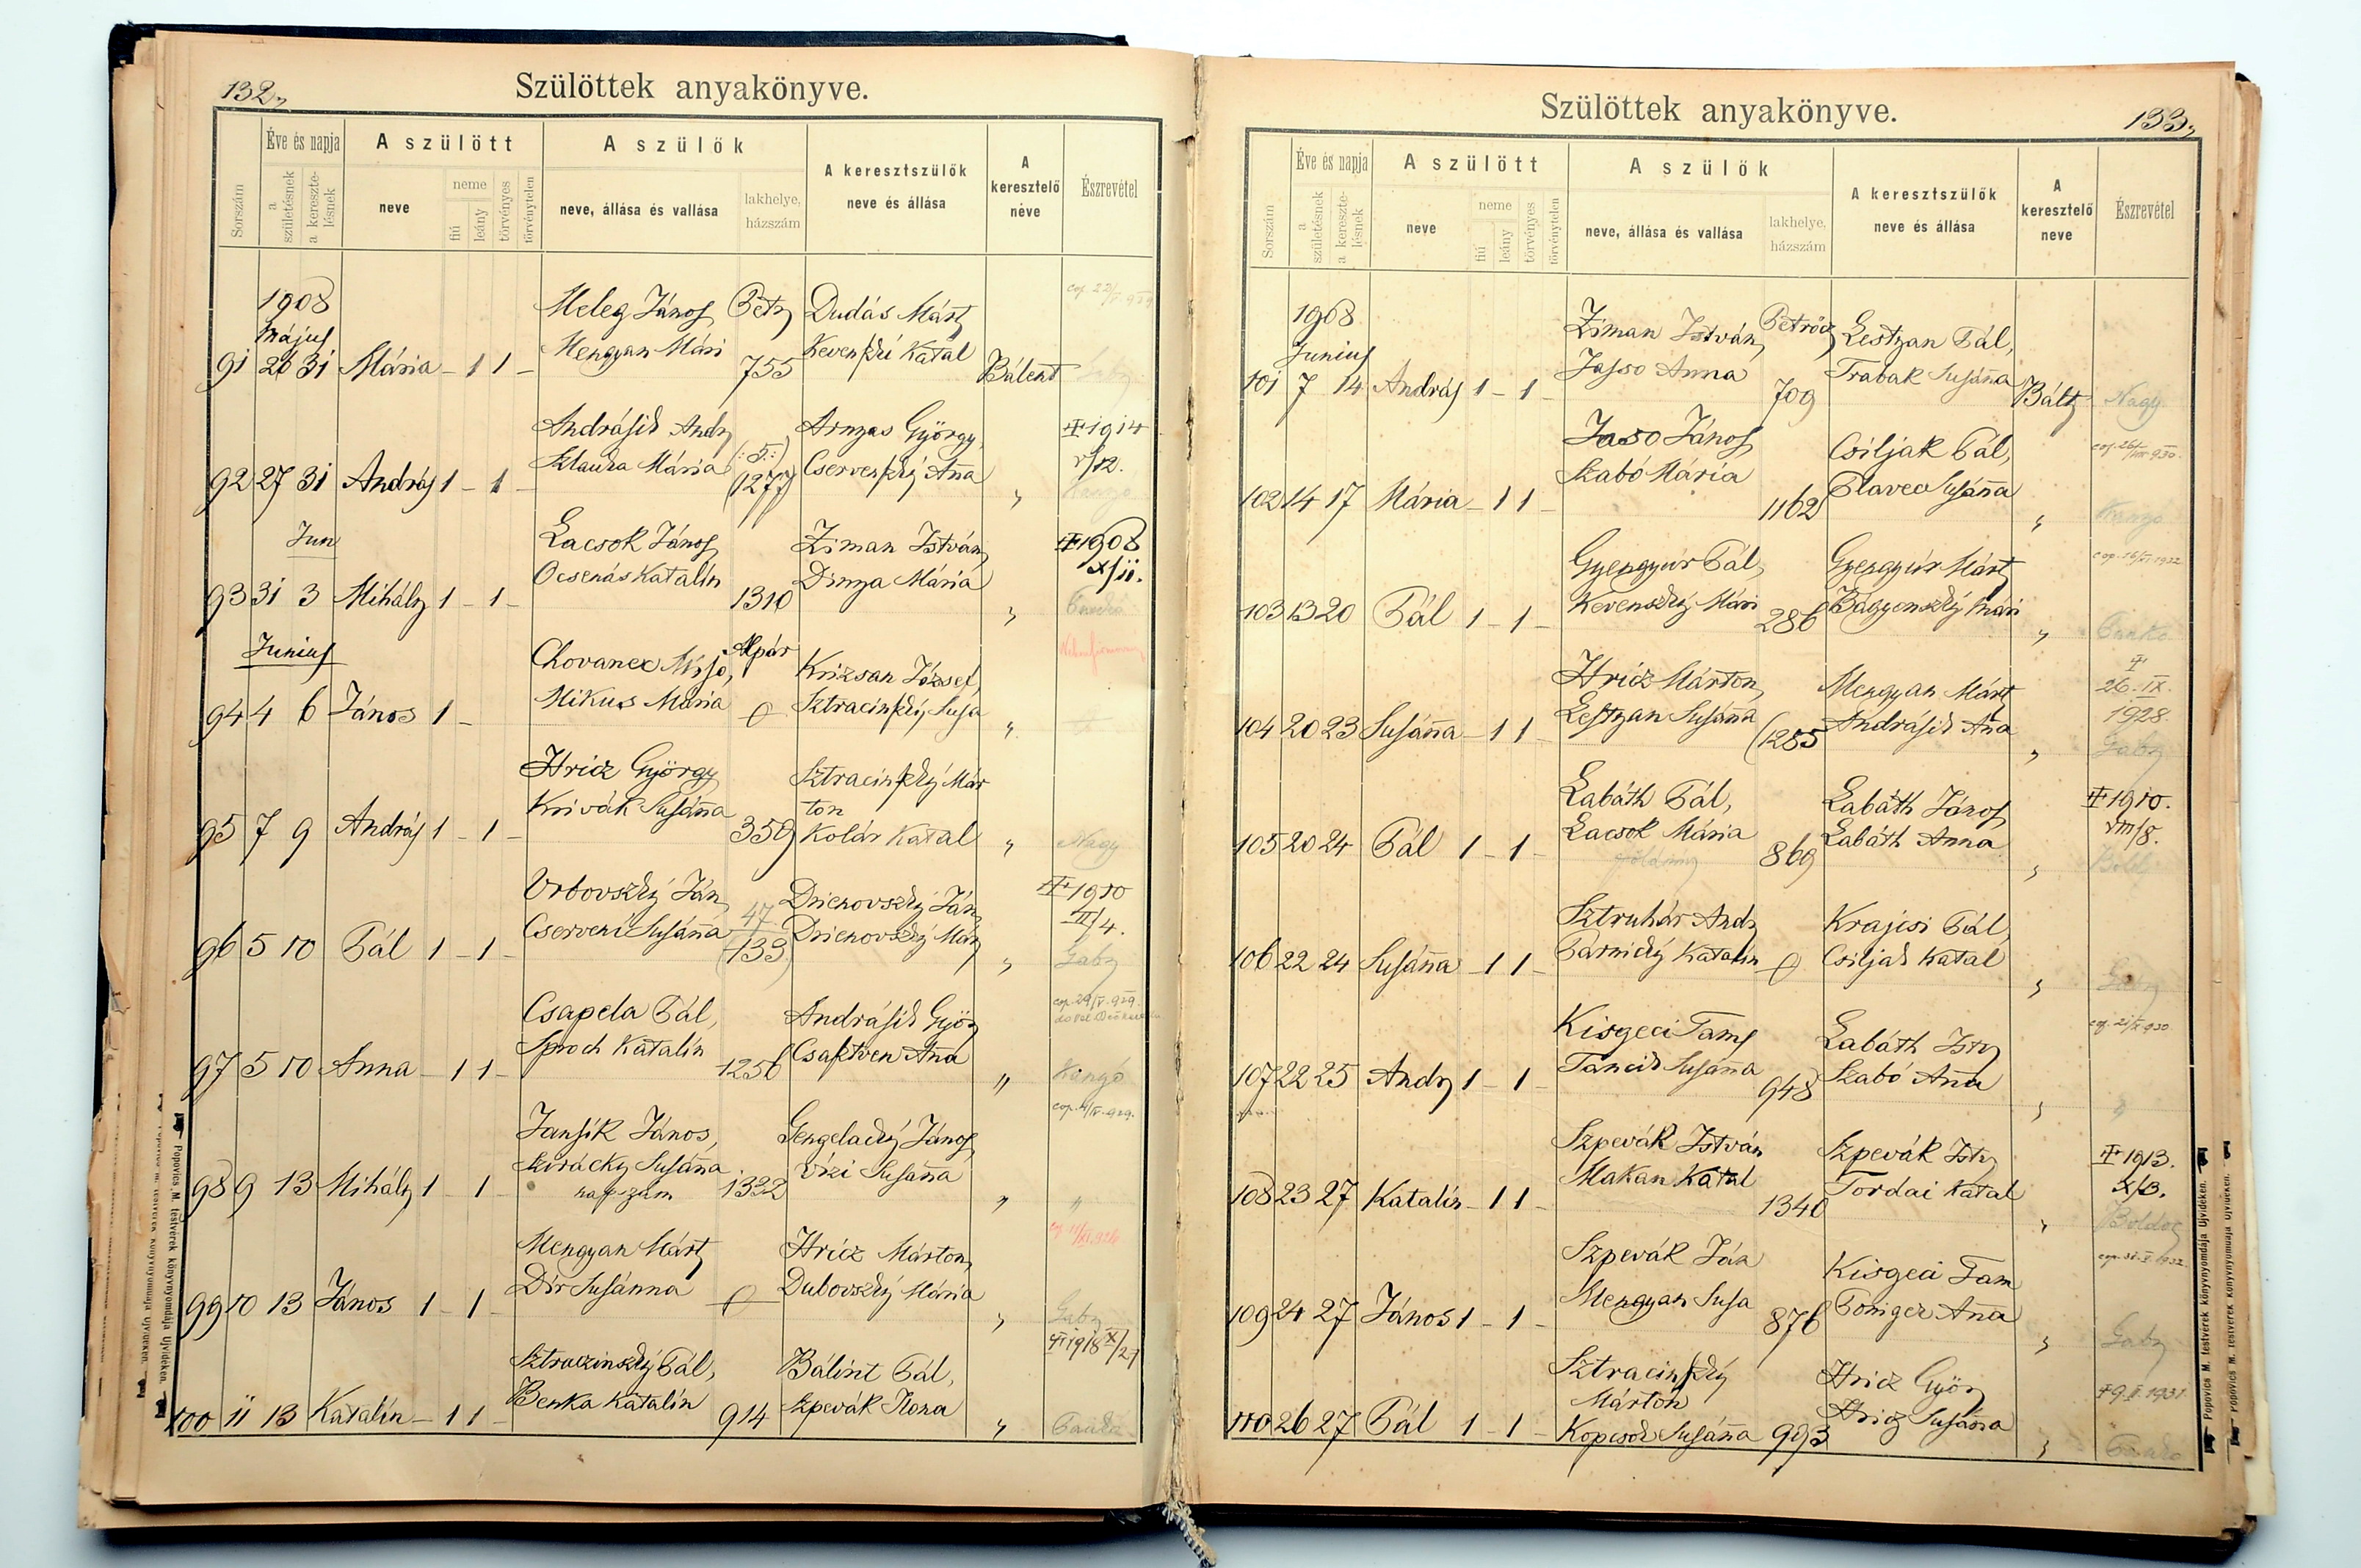 132,
Szülöttek anyakönyve.
Sorszám
Éve és napja
a születésnek
a keresztelésnek
A szülött
neve
neme
fiú
leány
törvényes
törvénytelen
A szülők
neve, állása és vallása
lakhelye, házszám
A keresztszülők
neve és állása
A keresztelő neve
Észrevétel
1908
május
Meleg János Petr Dudás Márt
91 26 31 Mária – 1 1 – Mengyan Mári 755 Kevenszki Katal Bálent
Andrásik Andr Arnyas György ✝1914
92 27 31 András 1 – 1 – Szlauka Mária (:5:) (1277) Cservenszky Anna " V/12.
Jun
Lacsok János Ziman István ✝1908
93 31 3 Mihály 1 – 1 – Ocsenás Katalin 1310 Dinya Mária " X/11.
Junius
Chovanec Misjo, Alpár Krizsan József,
94 4 6 János 1 – Mikus Mária 0 Sztracinszky Susa "
Hricz György Sztracinszky Már
95 7 9 András 1 – 1 – Krivák Susánna 359 ton
Kolár Katal " Nagy
Vrbovszky Ján 47 Drienovszky Ján ✝1910
96 5 10 Pál 1 – 1 – Cserveni Susánna (133) Drienovszky Már " III/4.
Gabr
Csapela Pál, Andrásik Györ cop. 29/V.929.
97 5 10 Anna – 1 1 – Sproch Katalin 1256 Csasztven Anna " Kangó
Jansik János, Gengelacky János cop. 4/IV.929.
98 9 13 Mihály 1 – 1 – Szirácky Susánna 1332 Vizi Susánna " "
napszám
Mengyan Márt Hricz Márton,
99 10 13 János 1 – 1 – Dir Susánna 0 Dubovszky Mária " Gabr
Sztraczinszky Pál, Bálint Pál, ✝1918 X/27
100 11 13 Katalin – 1 1 – Benka Katalin 914 Szpevák Ilona "
Popovics M. testvérek könyvnyomdája Ujvidéken.
Szülöttek anyakönyve.
133,
Sorszám
Éve és napja
a születésnek
a keresztelésnek
A szülött
neve
neme
fiú
leány
törvényes
törvénytelen
A szülők
neve, állása és vallása
lakhelye, házszám
A keresztszülők
neve és állása
A keresztelő neve
Észrevétel
1908
Junius
Ziman István, Petrőcz Lestyan Pál,
101 7 14 András 1 – 1 – Jasso Anna 709 Trabak Susánna Bált Nagy
Jasso János Csiljak Pál,
102 14 17 Mária – 1 1 – Szabó Mária 1162 Plavec Susánna " Kangó
Gyengyúr Pál, Gyengyúr Márt cop. 16/V.1932
103 13 20 Pál 1 – 1 – Kevenszky Mári 286 Bágyenszky Mári " Panko
Hricz Márton, Mengyan Márt ✝
26. IX.
1928.
104 20 23 Susánna – 1 1 – Lestyan Susánna (1285 Andrásik Anna " Gabr
Labáth Pál, Labáth János ✝1910.
105 20 24 Pál 1 – 1 – Lacsok Mária 869 Labáth Anna " VIII/8.
Sztruhár Andr Krajcsi Pál,
106 22 24 Susánna – 1 1 – Párnicky Katalin 0 Csiljak Katal "
Kisgeci Tams Labáth Istv
107 22 25 Andr 1 – 1 – Tancik Susánna 948 Szabó Anna " "
Szpevák István Szpevák Istv ✝1913.
108 23 27 Katalin – 1 1 – Makan Katal 1340 Tordai Katal " X/3.
Boldoc
Szpevák Ján Kisgeci Tam
109 24 27 János 1 – 1 – Mengyan Susa 876 Poniger Anna " Gabr
Sztracinszky Hricz Györ
Márton
110 26 27 Pál 1 – 1 – Kopcsok Susánna 993 Hricz Susánna "
Popovics M. testvérek könyvnyomdája Ujvidéken.